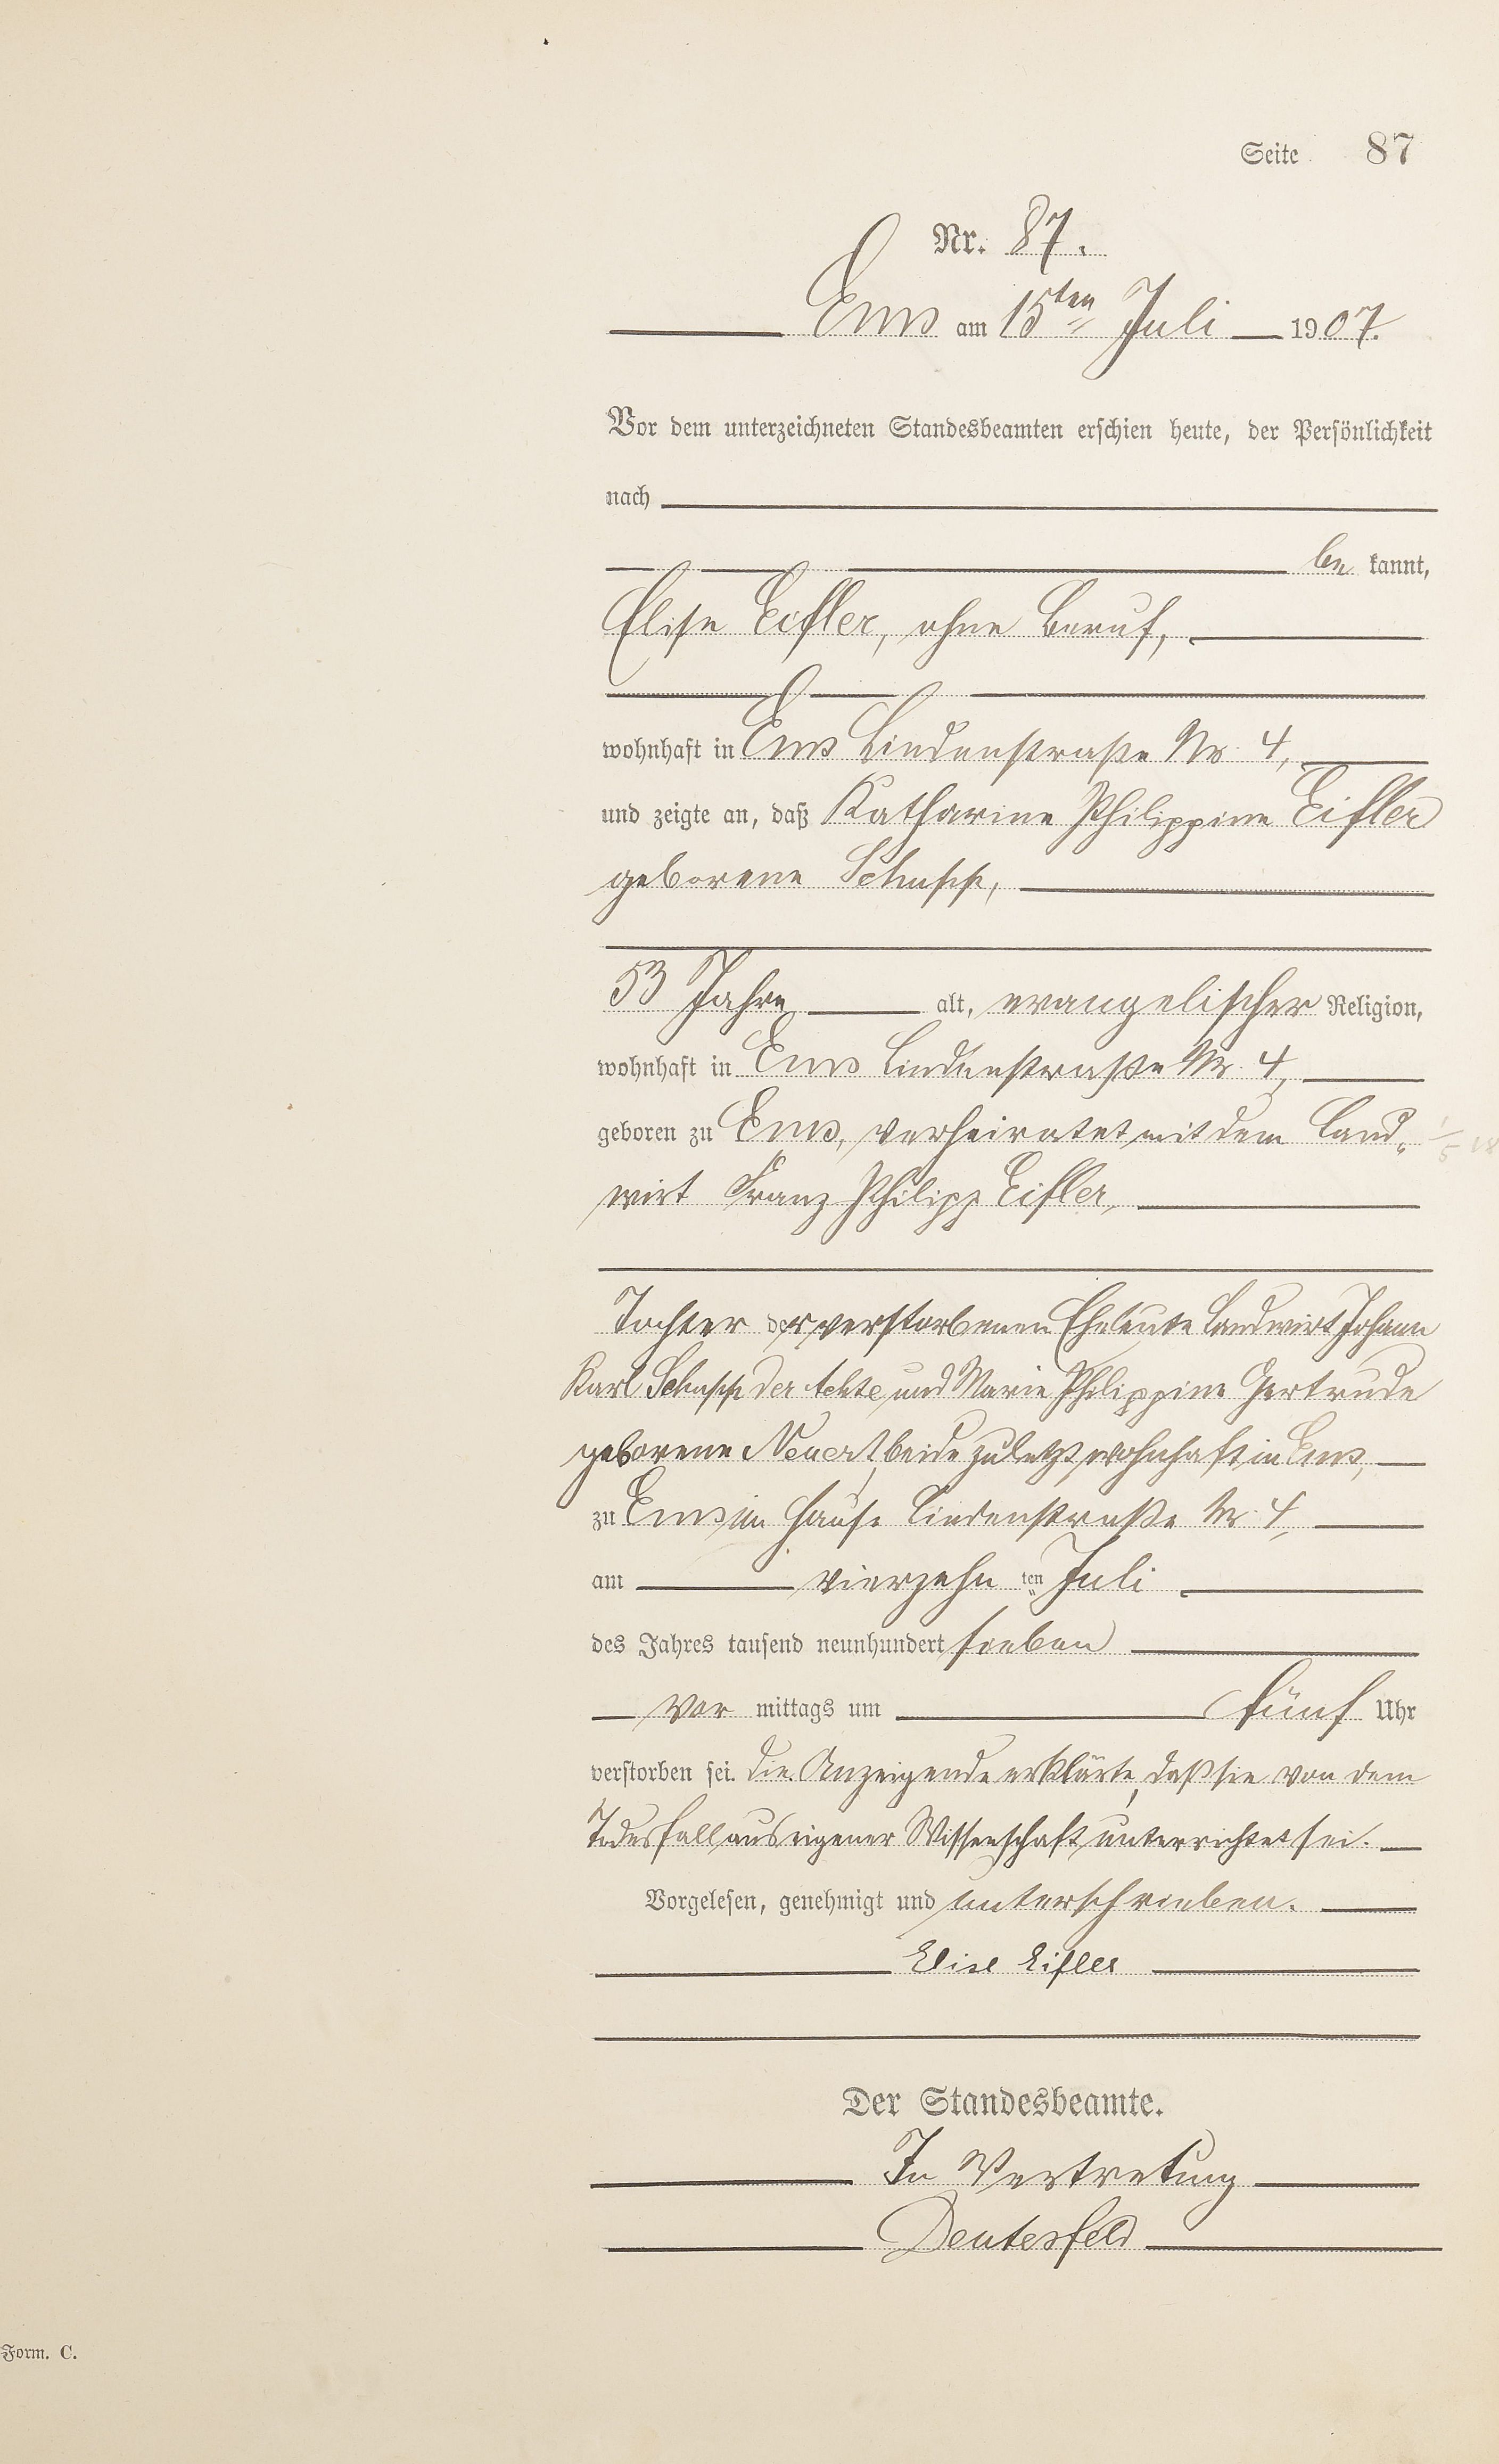 Seite 87
Nr. 87.
Ems am 15ten Juli 1907.
Vor dem unterzeichneten Standesbeamten erschien heute, der Persönlichkeit
nach
be kannt,
Elise Eifler, ohne Beruf,
wohnhaft in Ems Lindenstraße Nr. 4,
und zeigte an, daß Katharine Philippine Eifler
geborene Schupp,
53 Jahre alt, evangelischer Religion,
wohnhaft in Ems Lindenstraße Nr. 4,
geboren zu Ems, verheiratet mit dem Land„
wirt Franz Philipp Eifler,
Tochter der verstorbenen Eheleute Landwirt Johann
Karl Schupp der Achte und Marie Philippine Gertrude
geborene Neuert, beide zuletzt wohnhaft in Ems,
zu Ems im Hause Lindenstraße Nr. 4,
am vierzehn ten Juli
des Jahres tausend neunhundert sieben
vor mittags um fünf Uhr
verstorben sei. Die Anzeigende erklärte, daß sie von dem
Todesfall aus eigener Wissenschaft unterrichtet sei.
Vorgelesen, genehmigt und unterschrieben.
Elise Eifler
Der Standesbeamte.
In Vertretung
Deutesfeld
Form. C.